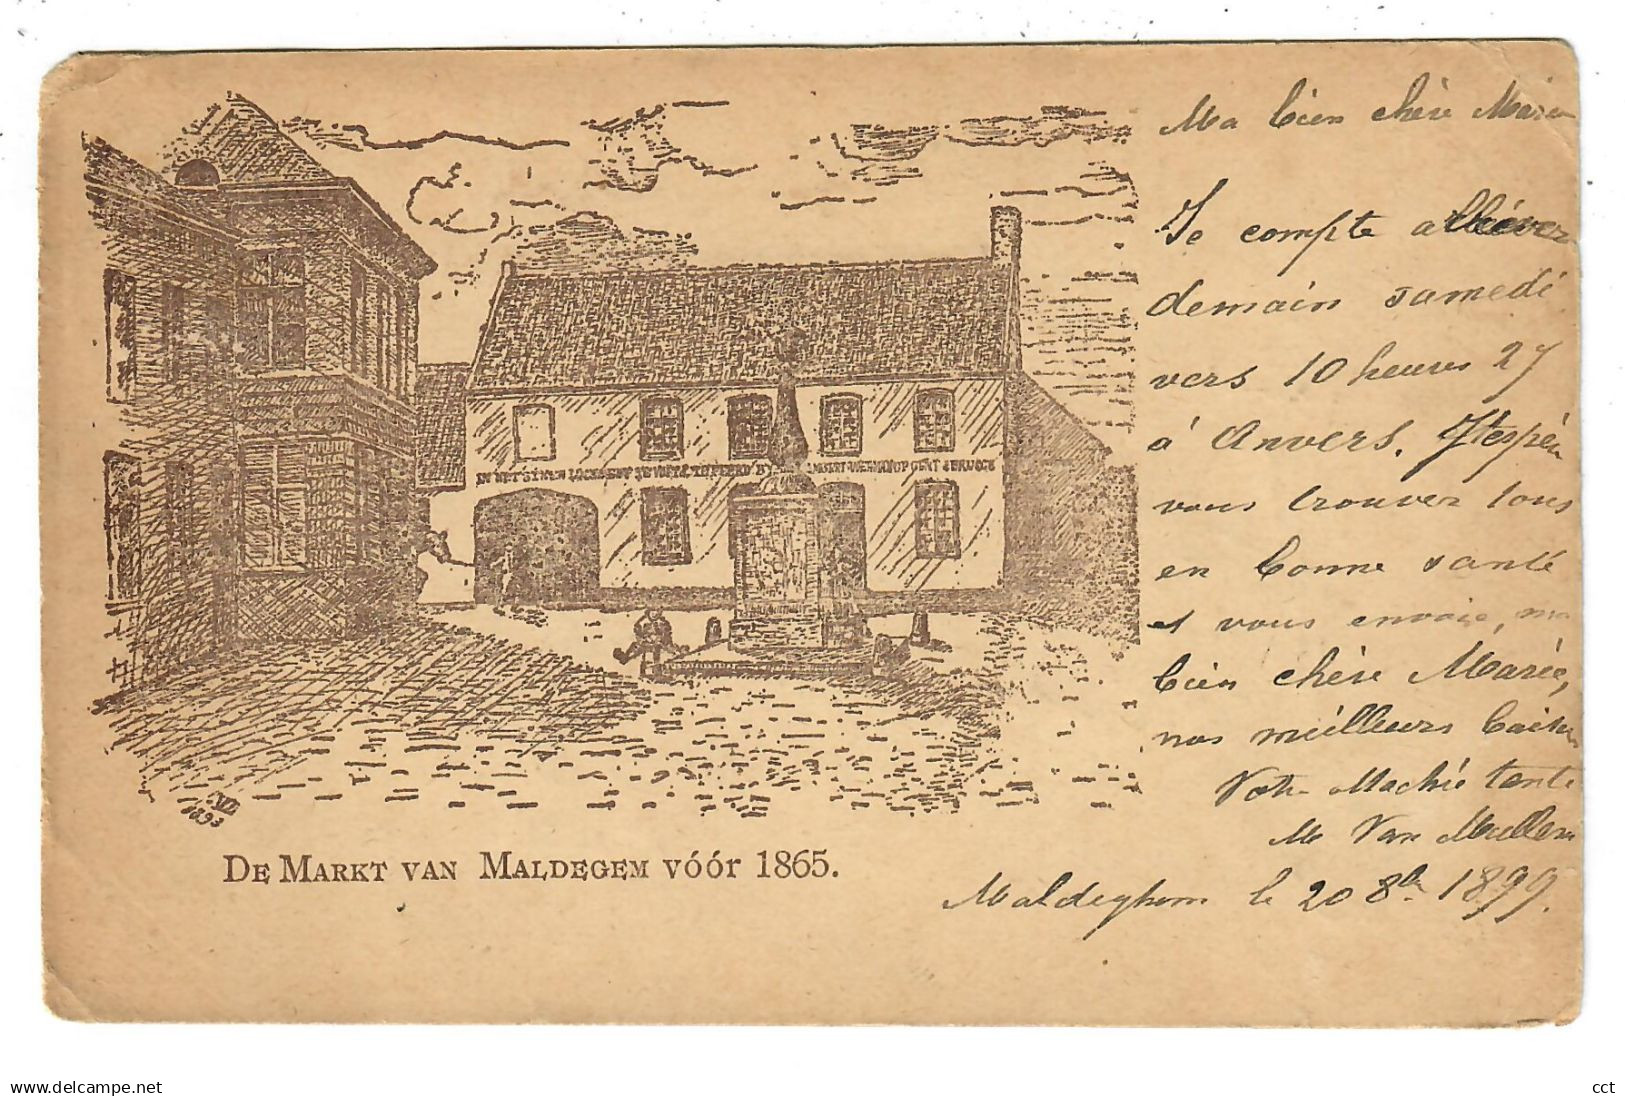 Ma bien chère Marie
Je compte arriver
demain samedi
vers 10 heures 27
à Anvers. J'espère
vous trouver tous
en bonne santé
et vous envoie, ma
bien chère Marie,
nos meilleurs baisers
Votre tante
M Van Mullem
Maldeghem le 20 8bre 1899.
IN HET
GENT & BRUGGE
VD
1893
DE MARKT VAN MALDEGEM VÓÓR 1865.
www.delcampe.net
cct